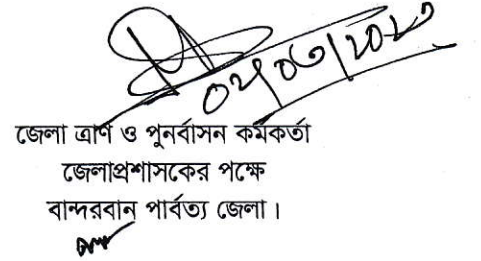 জেলা ত্রাণ ও পুনর্বাসন কর্মকর্তা
জেলাপ্রশাসকের পক্ষে
বান্দরবান পার্বত্য জেলা।